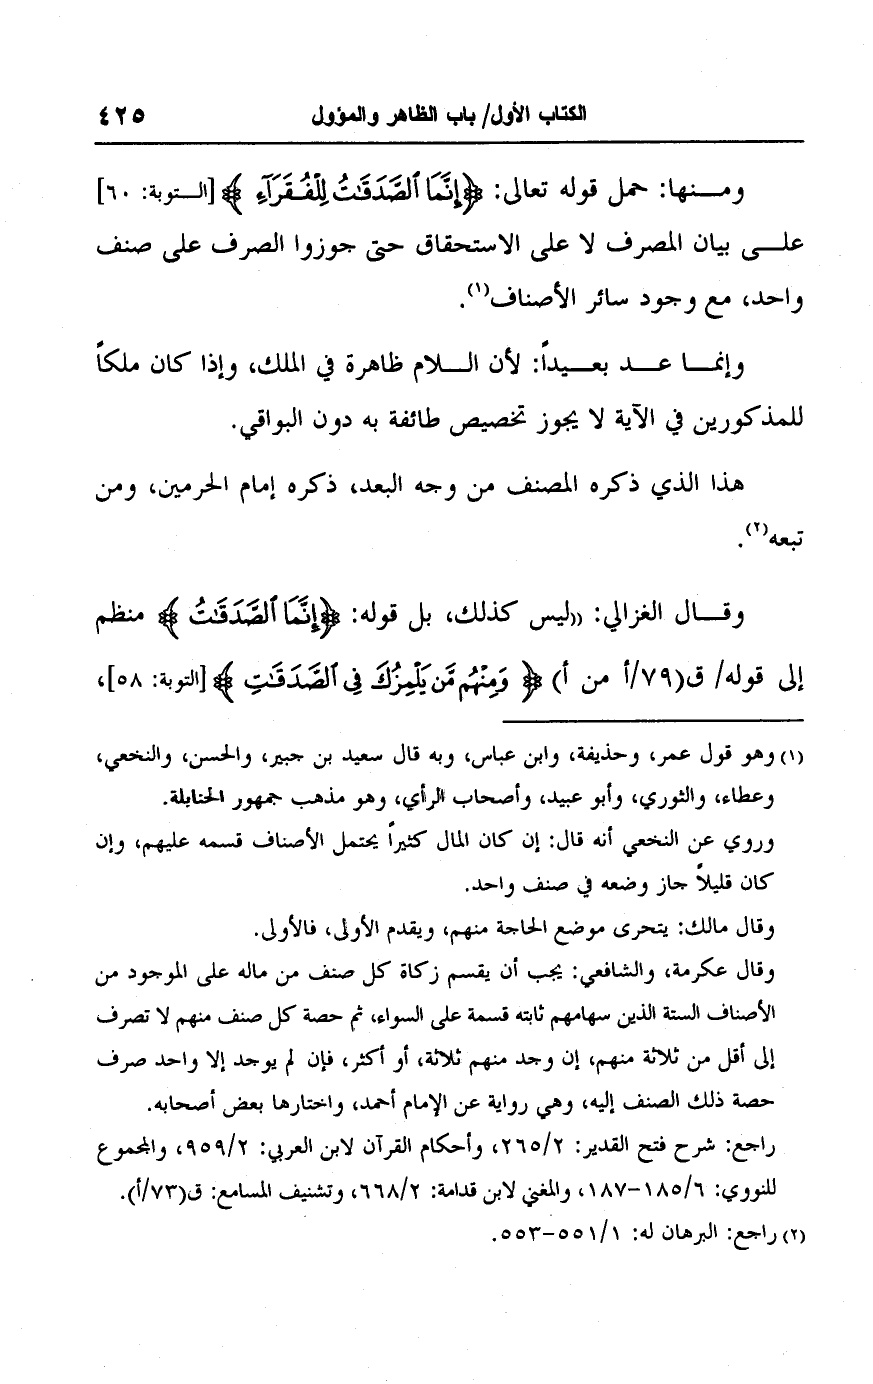 الكتاب الأول/ باب الظاهر والمؤول ٤٢٥
ومنها: حمل قوله تعالى: ﴿إِنَّمَا ٱلصَّدَقَٰتُ لِلْفُقَرَآءِ﴾ [التوبة: ٦٠]
على بيان المصرف لا على الاستحقاق حتى جوزوا الصرف على صنف
واحد، مع وجود سائر الأصناف(١).
وإنما عد بعيداً: لأن اللام ظاهرة في الملك، وإذا كان ملكاً
للمذكورين في الآية لا يجوز تخصيص طائفة به دون البواقي.
هذا الذي ذكره المصنف من وجه البعد، ذكره إمام الحرمين، ومن
تبعه(٢).
وقال الغزالي: «ليس كذلك، بل قوله: ﴿إِنَّمَا ٱلصَّدَقَٰتُ﴾ منظم
إلى قوله/ ق(٧٩/أ من أ) ﴿وَمِنْهُم مَّن يَلْمِزُكَ فِى ٱلصَّدَقَٰتِ﴾ [التوبة: ٥٨]،
(١) وهو قول عمر، وحذيفة، وابن عباس، وبه قال سعيد بن جبير، والحسن، والنخعي،
وعطاء، والثوري، وأبو عبيد، وأصحاب الرأي، وهو مذهب جمهور الحنابلة.
وروي عن النخعي أنه قال: إن كان المال كثيراً يحتمل الأصناف قسمه عليهم، وإن
كان قليلاً جاز وضعه في صنف واحد.
وقال مالك: يتحرى موضع الحاجة منهم، ويقدم الأولى، فالأولى.
وقال عكرمة، والشافعي: يجب أن يقسم زكاة كل صنف من ماله على الموجود من
الأصناف الستة الذين سهامهم ثابته قسمة على السواء، ثم حصة كل صنف منهم لا تصرف
إلى أقل من ثلاثة منهم، إن وجد منهم ثلاثة، أو أكثر، فإن لم يوجد إلا واحد صرف
حصة ذلك الصنف إليه، وهي رواية عن الإمام أحمد، واختارها بعض أصحابه.
راجع: شرح فتح القدير: ٢٦٥/٢، وأحكام القرآن لابن العربي: ٩٥٩/٢، والمجموع
للنووي: ١٨٥/٦-١٨٧، والمغني لابن قدامة: ٦٦٨/٢، وتشنيف المسامع: ق(٧٣/أ).
(٢) راجع: البرهان له: ٥٥١/١-٥٥٣.